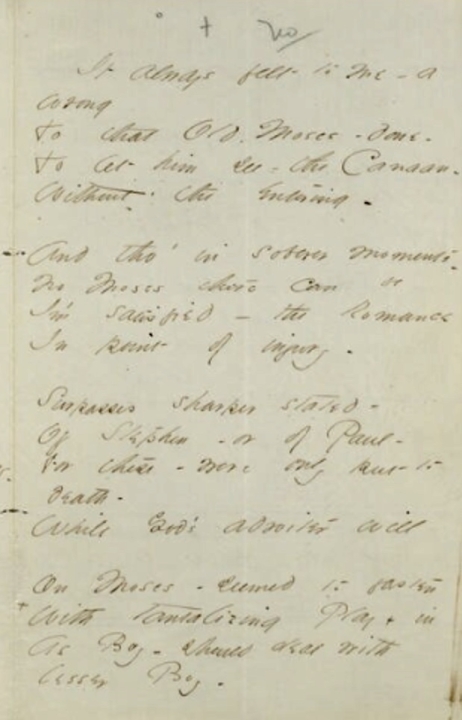 + no
It always felt to me - a
wrong
To that Old Moses - done -
To let him see - the Canaan -
Without the entering -
And tho' in soberer moments -
No Moses there can be
I'm satisfied - the Romance
In point of injury -
Surpasses sharper stated -
Of Stephen - or of Paul -
For these - were only put to
death -
While God's adroiter will
On Moses - seemed to fasten
+ With tantalizing Play + in
As Boy - should deal with
lesser Boy -